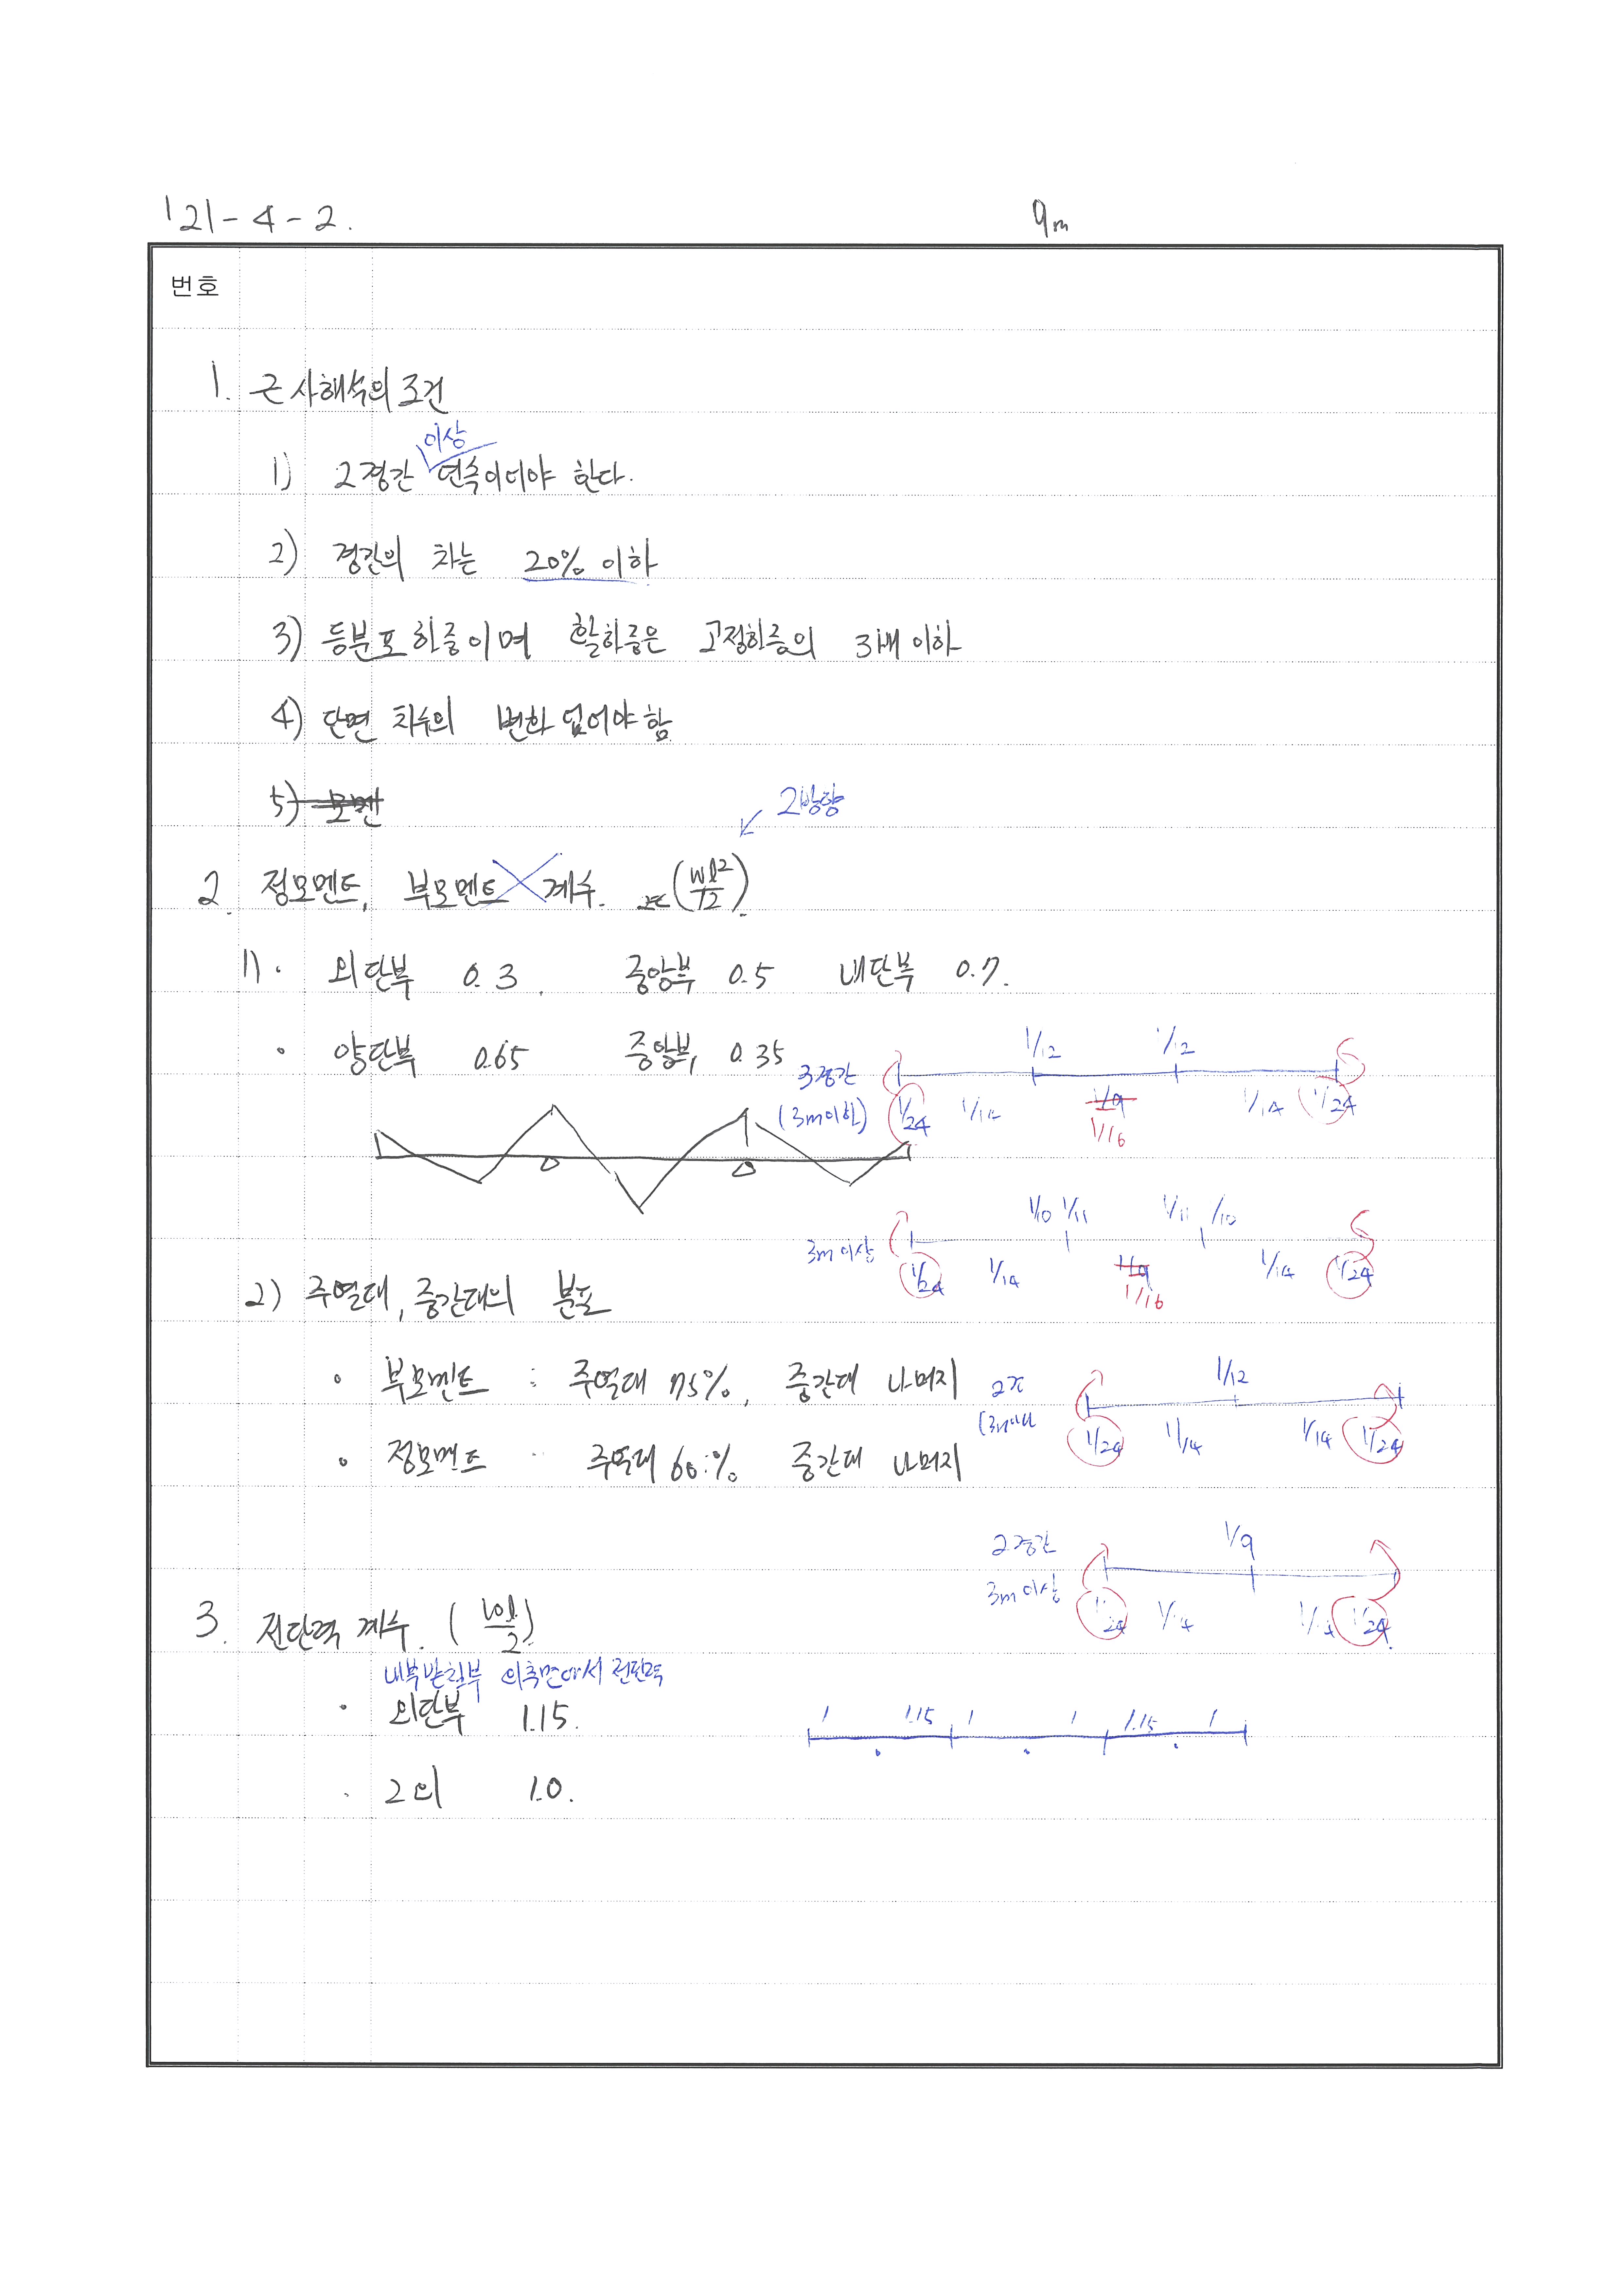 '21-4-2.
9m
번호
1. 근사해석의 조건
이상
1) 2경간 연속이어야 한다.
2) 경간의 차는 20% 이하
3) 등분포하중이며 활하중은 고정하중의 3배 이하
4) 단면 치수의 변화 없어야 함
5) 모멘
2방향
2. 정모멘트, 부모멘트 계수. (wl²/12)
1) · 외단부 0.3, 중앙부 0.5 내단부 0.7.
· 양단부 0.65 중앙부 0.35
1/12 1/12
3경간
(3m이하) 1/24 1/14 1/9 1/14 1/24
1/16
1/10 1/11 1/11 1/10
3m 이상 1/24 1/14 1/9 1/14 1/24
1/16
2) 주열대, 중간대의 분포
· 부모멘트 : 주열대 75%, 중간대 나머지
1/12
1/24 1/14 1/14 1/24
· 정모멘트 주열대 60% 중간대 나머지
2경간 1/9
3m 이상 1/24 1/14 1/14 1/24
3. 전단력 계수. (wl/2)
내부받침부 외측면에서 전단력
· 외단부 1.15.
1 1.15 1 1 1.15 1
· 그외 1.0.